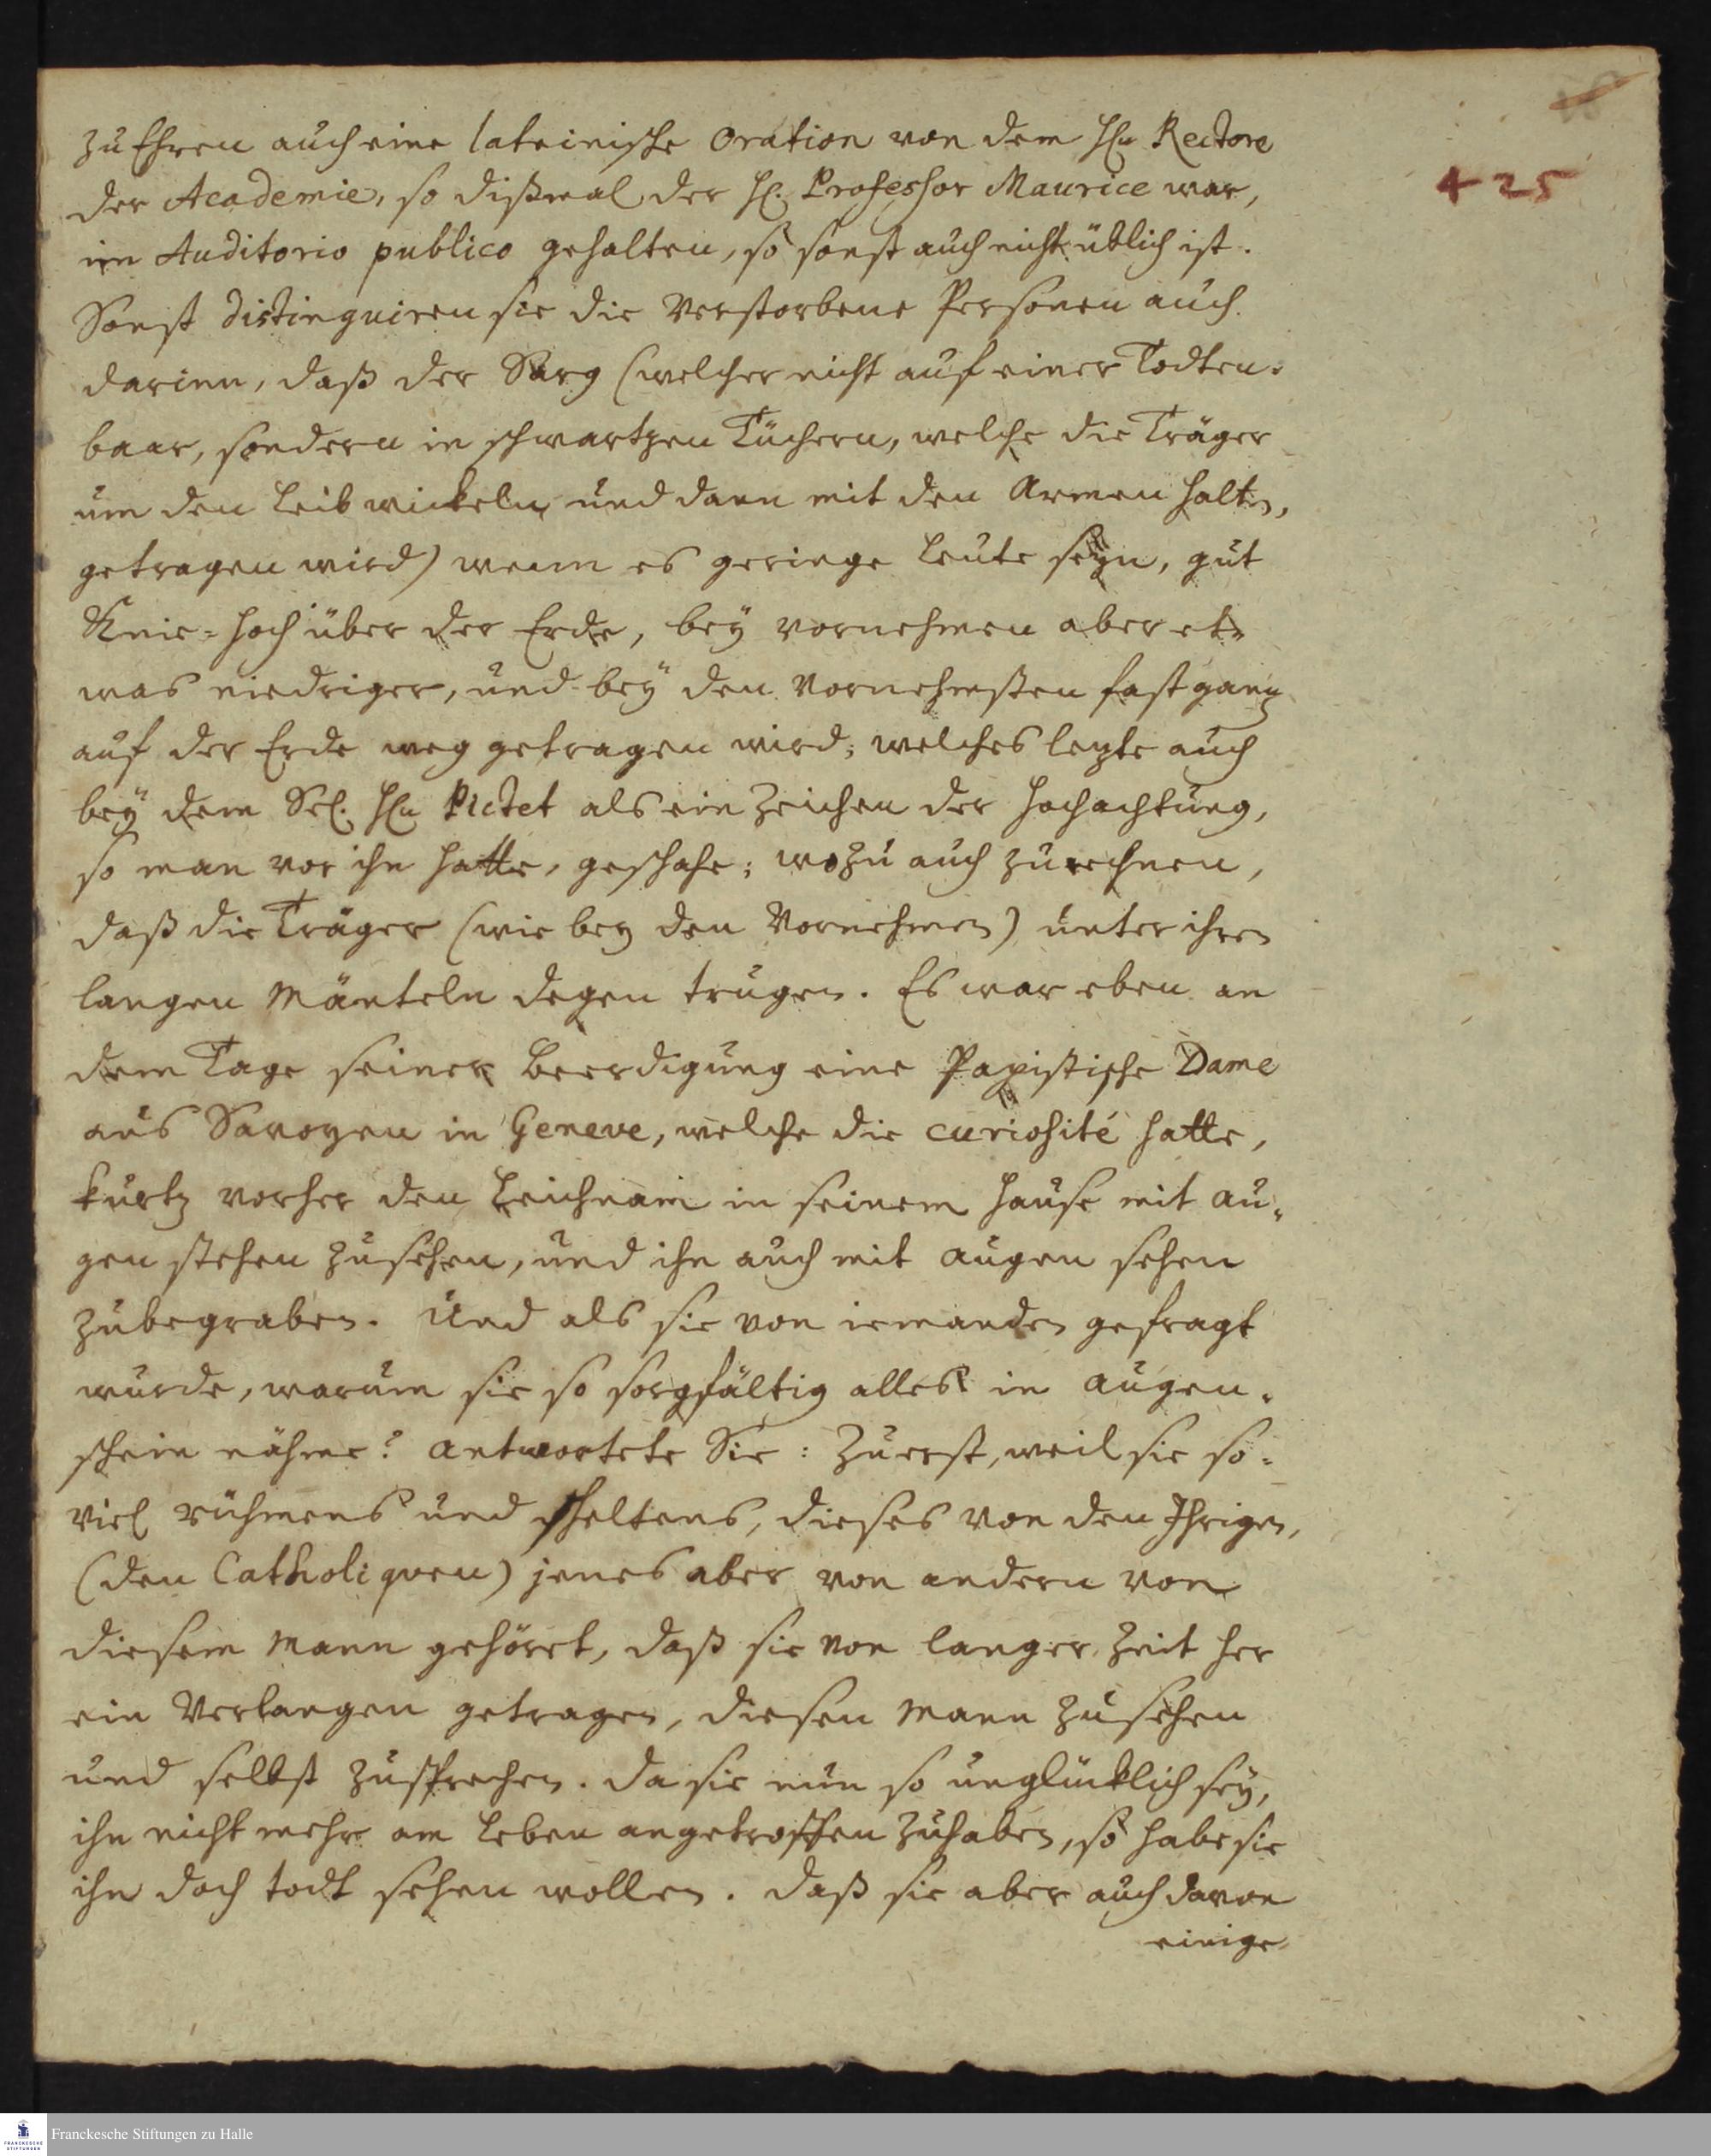 425
zu Ehren auch eine lateinische Oration von dem Hn Rectore
der Academie, so dißmal der H. Professor Maurice war,
im Auditorio publico gehalten, so sonst auch nicht üblich ist.
Sonst distinguiren sie die Verstorbene Personen auch
darinn, daß der Sarg (welcher nicht auf einer Todten-
baar, sondern in schwartzen Tüchern, welche die Träger
um den Leib wickeln und dann mit den Armen halten,
getragen wird) wenn es geringe Leute seyn, gut
Knie-hoch über der Erde, bey vornehmen aber et-
was niedriger, und bey den Vornehmsten fast gantz
auf der Erde weg getragen wird; welches letzte auch
bey dem Sel. Hn Pictet als ein Zeichen der Hochachtung,
so man vor ihn hatte, geschahe; wozu auch zu rechnen,
daß die Träger (wie bey den Vornehmen) unter ihren
langen Mänteln Degen trugen. Es war eben an
dem Tage seiner Beerdigung eine Papistische Dame
aus Savoyen in Geneve, welche die curiosité hatte,
kurtz vorher den Leichnam in seinem Hause mit Au-
gen stehen zu sehen, und ihn auch mit Augen sehen
zu begraben. Und als sie von iemanden gefragt
wurde, warum sie so sorgfältig alles in Augen-
schein nähme? antwortete Sie: Zuerst, weil sie so-
viel rühmens und scheltens, dieses von den Ihrigen,
(den Catholiquen) jenes aber von andern von
diesem Mann gehöret, daß sie von langer Zeit her
ein Verlangen getragen, diesen Mann zu sehen
und selbst zu sprechen. Da sie nun so unglücklich sey,
ihn nicht mehr am Leben angetroffen zu haben, so habe sie
ihn doch todt sehen wollen. Daß sie aber auch davon
einige
Franckesche Stiftungen zu Halle
FRANCKESCHE
STIFTUNGEN